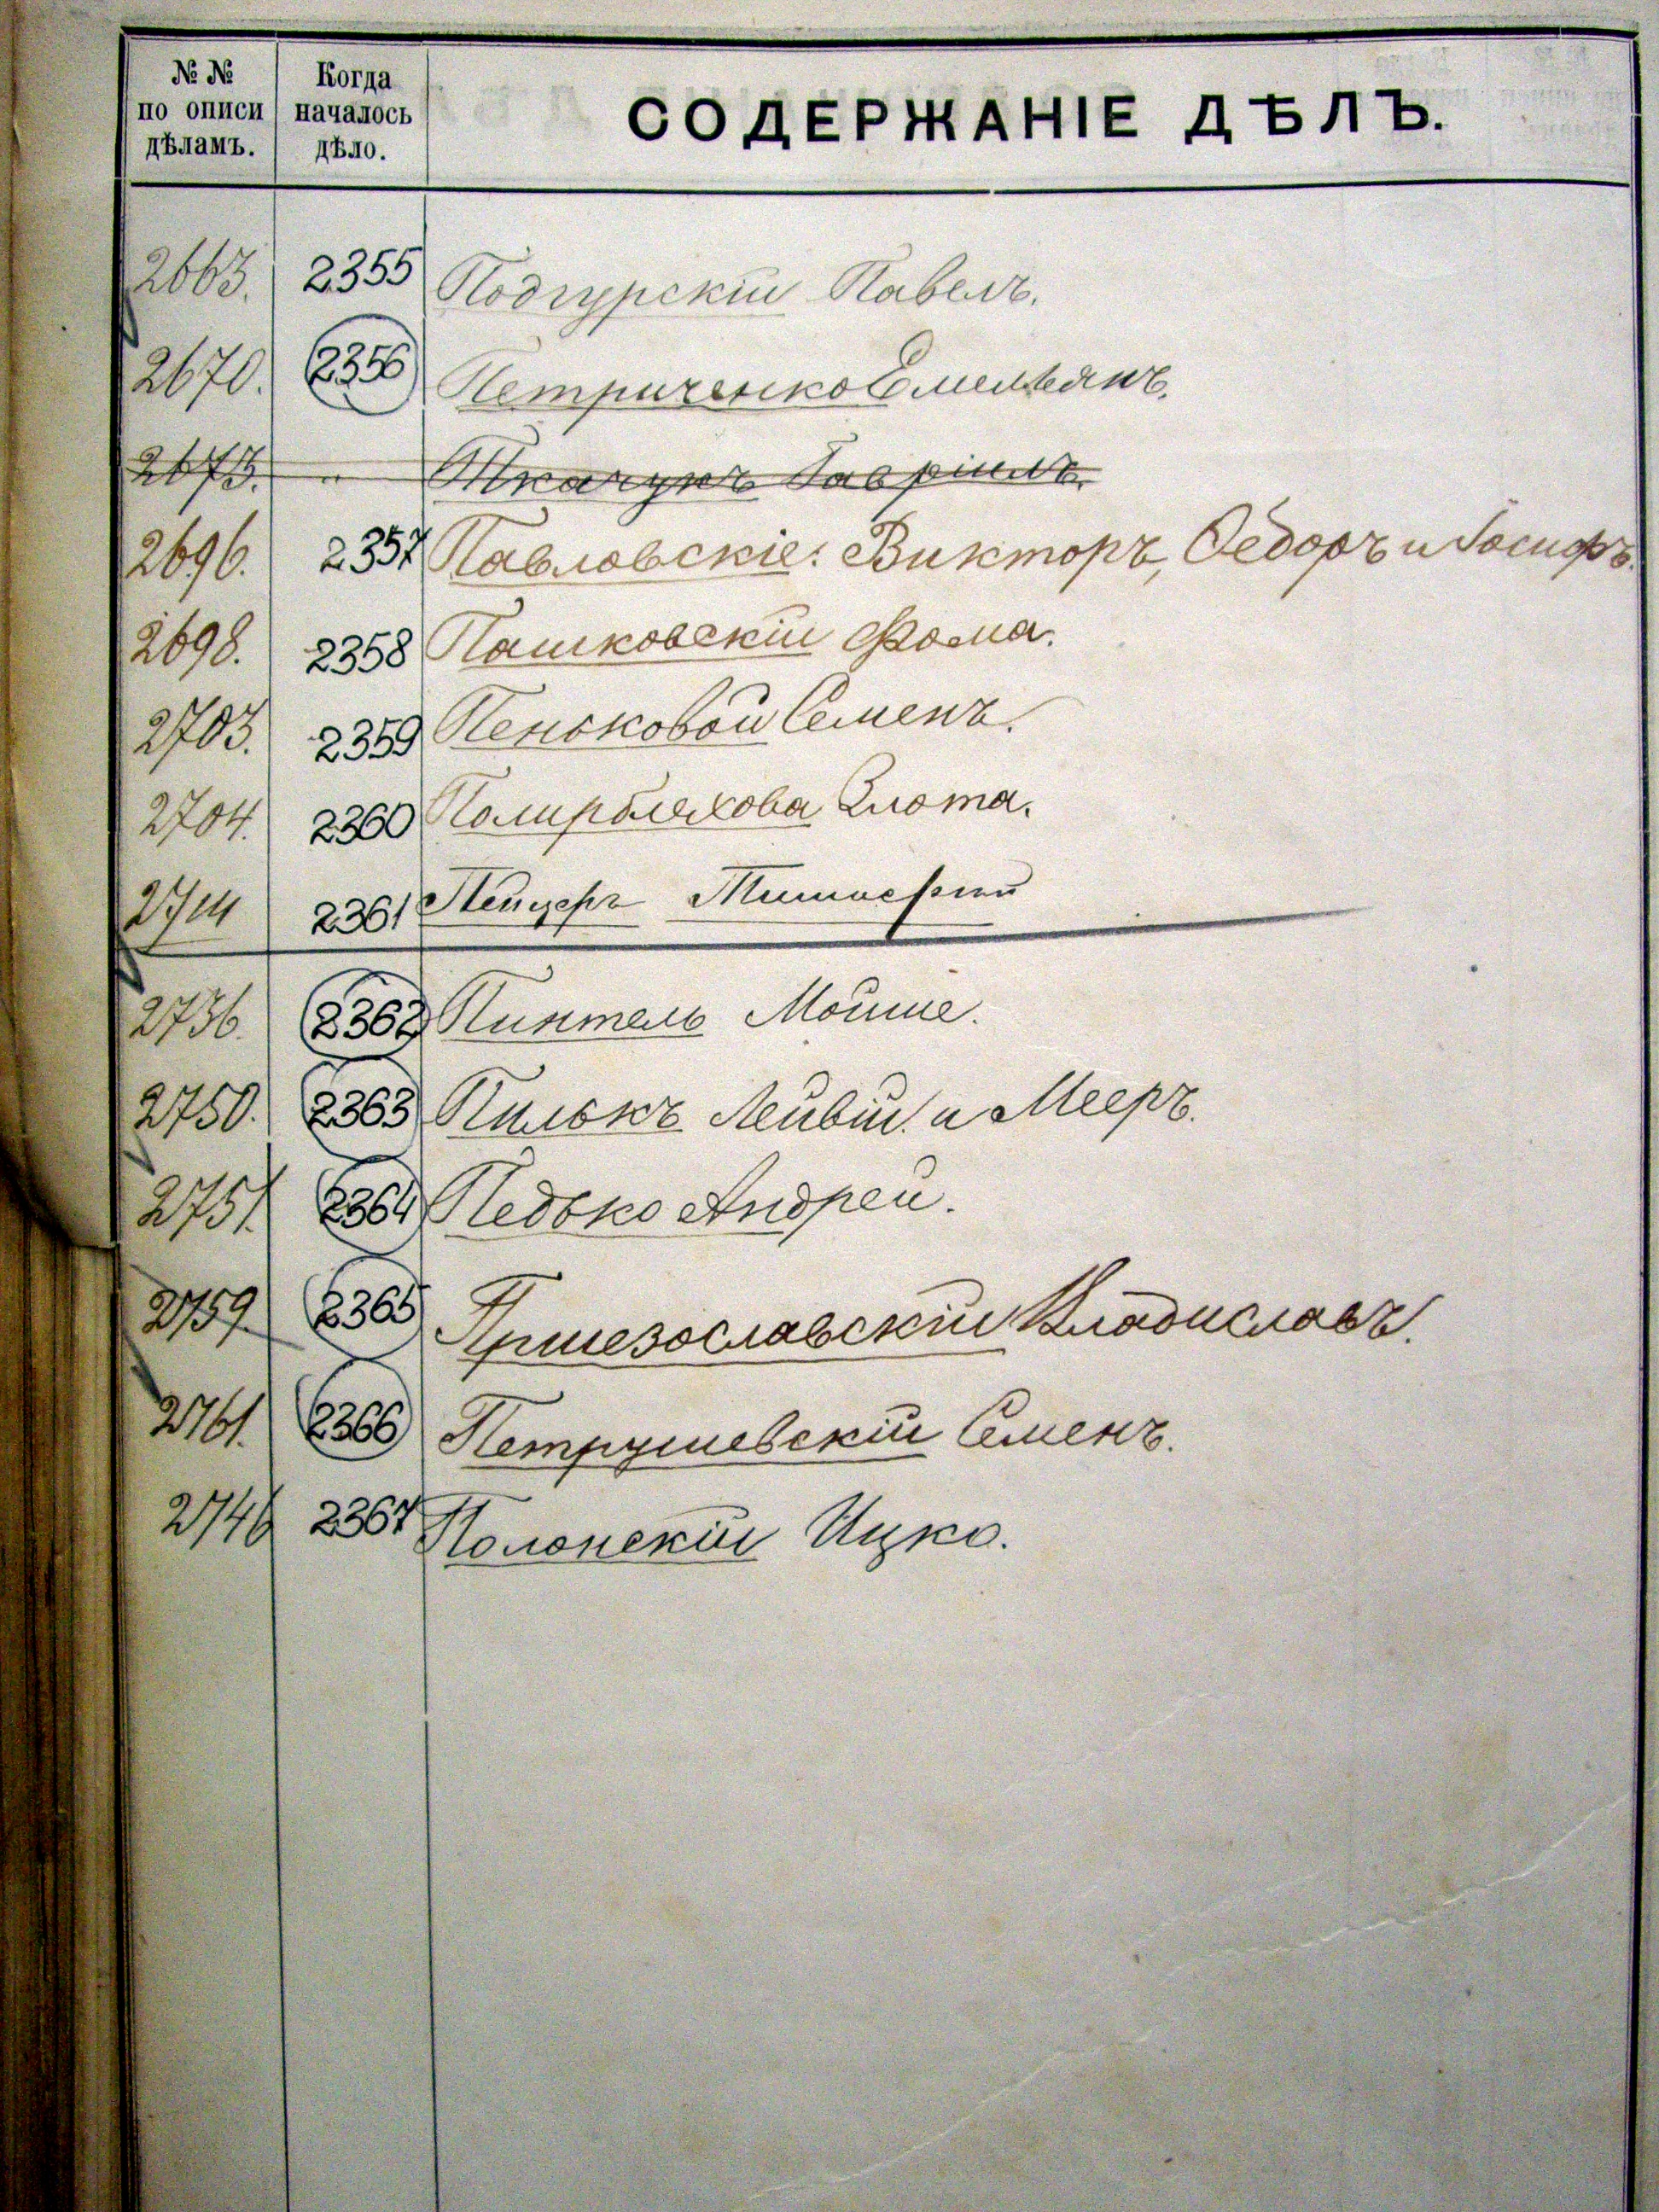 № № по описи дѣламъ.
Когда началось дѣло.
СОДЕРЖАНІЕ ДѢЛЪ.
2663. 2355 Подгурскій Павелъ.
2670. 2356 Петриченко Емельянъ.
2673. " Ткачукъ Гавріилъ.
2696. 2357 Павловскіе: Викторъ, Ѳедоръ и Іосифъ.
2698. 2358 Пашковскій Фома.
2703. 2359 Пеньковой Семенъ.
2704. 2360 Полирблехова Злота.
2361 Пейцеръ
2736. 2362 Пинтель Мойше.
2750. 2363 Пилькъ Лейвій и Мееръ.
2751. 2364 Педько Андрей.
2759. 2365 Пршезославскій Владиславъ.
2761. 2366 Петрушевскій Семенъ.
2746 2367 Полонскій Ицко.